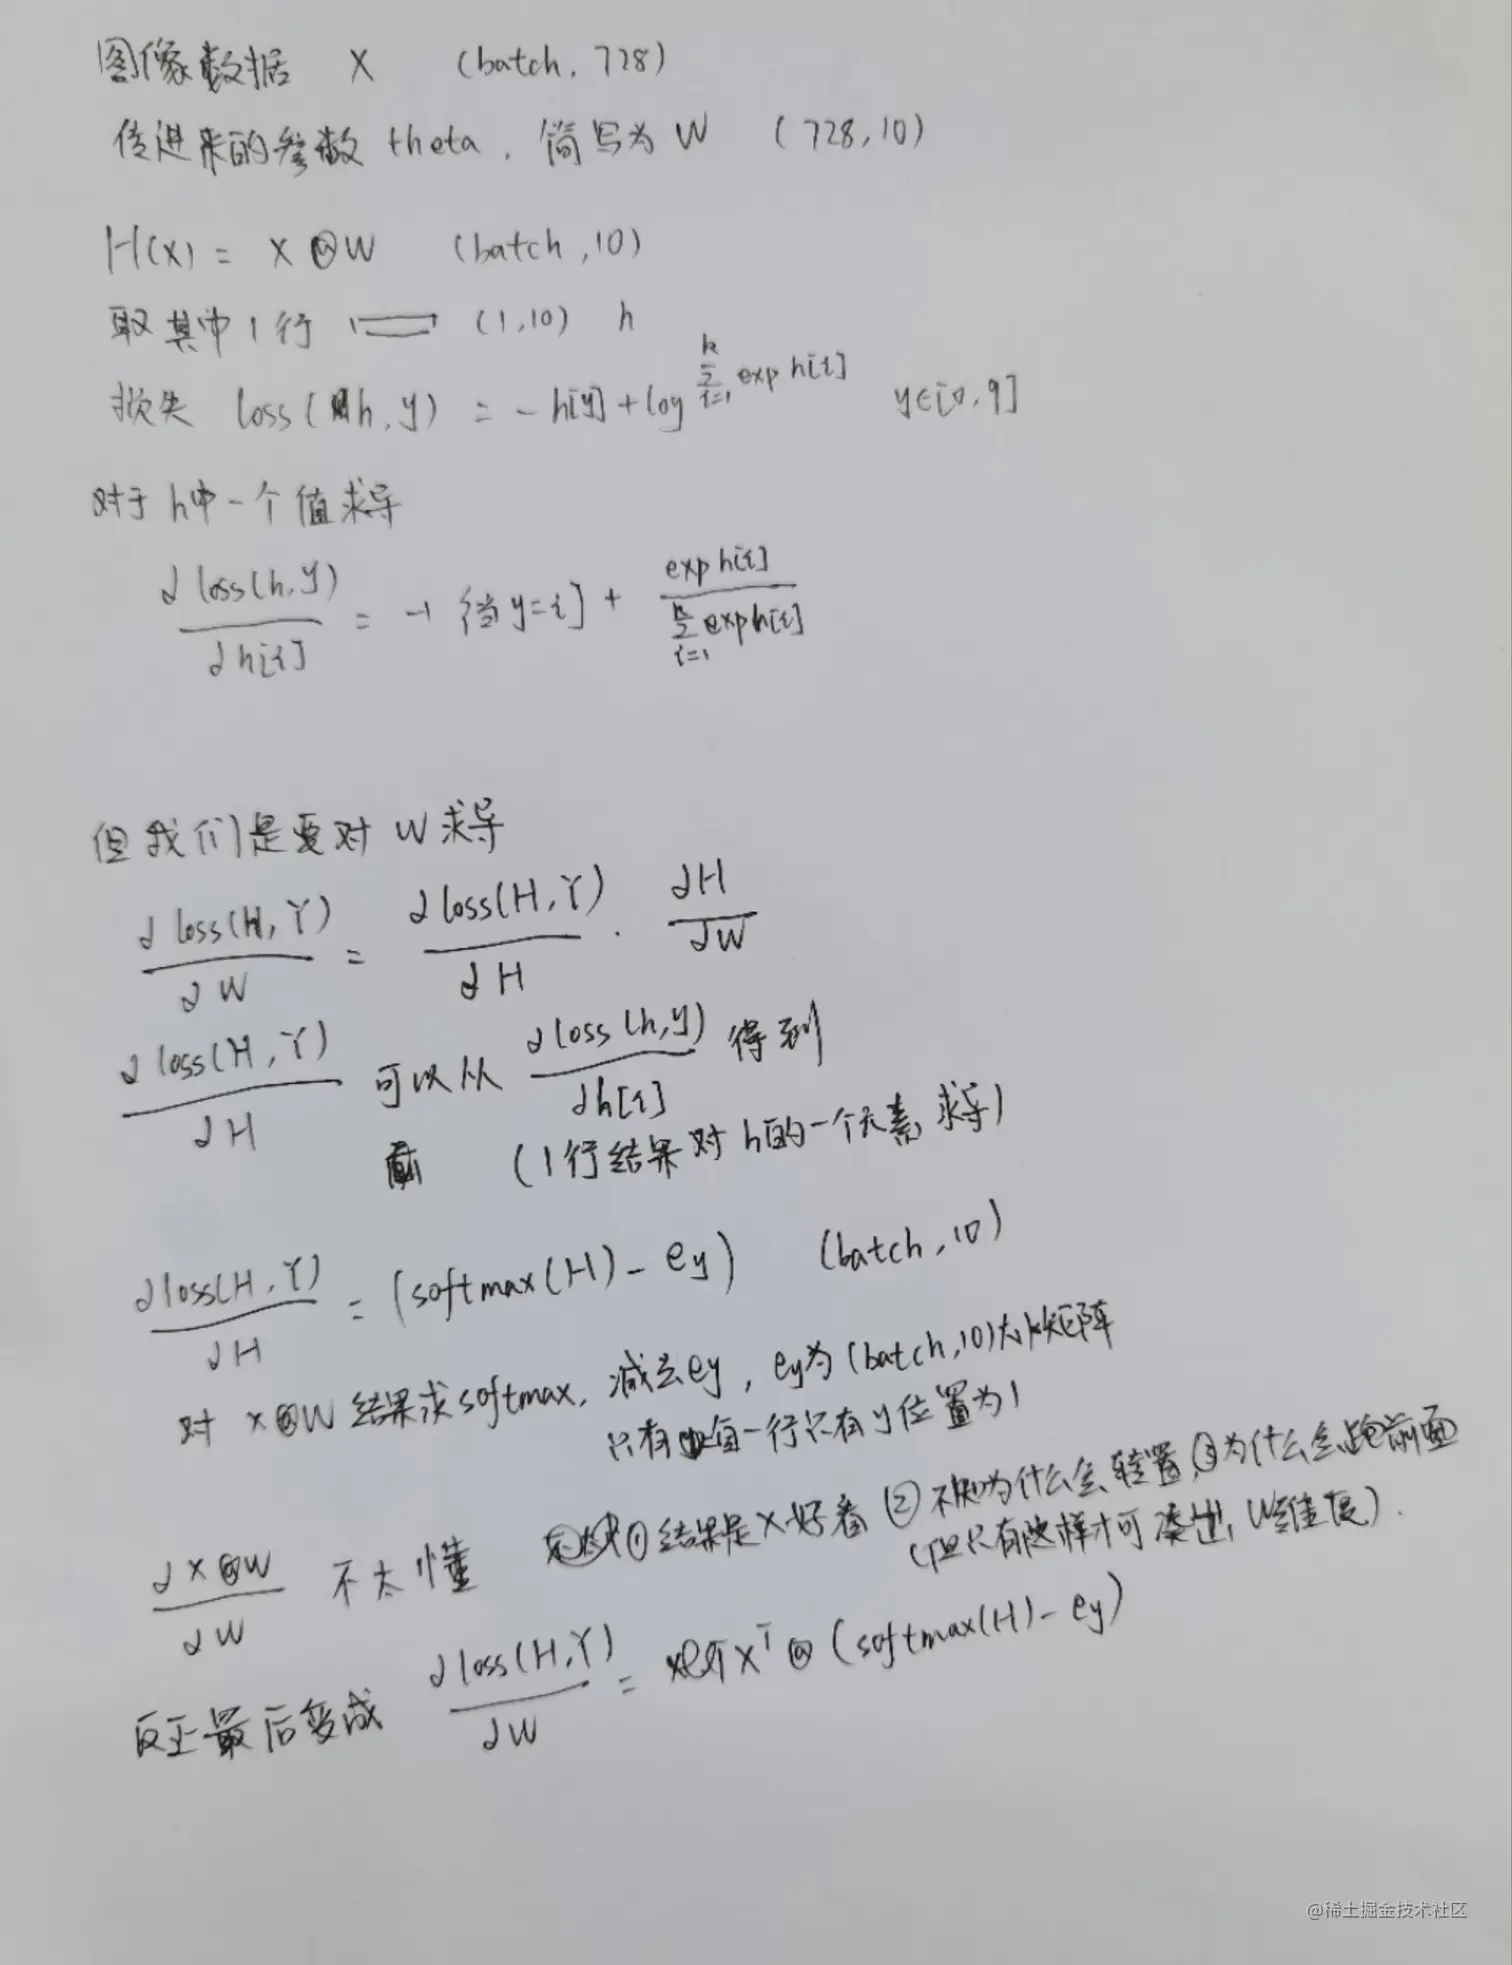 图像数据 X (batch, 728)
传进来的参数 theta, 简写为 W (728, 10)
H(X) = X @ W (batch, 10)
取其中1行 (1, 10) h
损失 loss(h, y) = -h[y] + log ∑_{i=1}^{k} exp h[i] y∈[0, 9]
对于 h中一个值求导
∂loss(h, y) / ∂h[i] = -1 {当y=i} + exp h[i] / ∑_{i=1}^{k} exp h[i]
但我们是要对 W 求导
∂loss(H, Y) / ∂W = ∂loss(H, Y) / ∂H · ∂H / ∂W
∂loss(H, Y) / ∂H 可以从 ∂loss(h, y) / ∂h[i] 得到
(1行结果对 h的一个元素求导)
∂loss(H, Y) / ∂H = (softmax(H) - ey) (batch, 10)
对 X@W 结果求softmax, 减去ey, ey为(batch, 10)大小矩阵
只有每一行只有y位置为1
∂X@W / ∂W 不太懂 ① 结果是X好看 ② 不知为什么会转置, ③ 为什么会跑前面
(但只有这样才可凑出 W维度).
反正最后变成 ∂loss(H, Y) / ∂W = X^T @ (softmax(H) - ey)
@稀土掘金技术社区